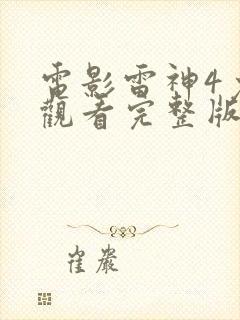 電影雷神4
觀看完整版
崔嚴